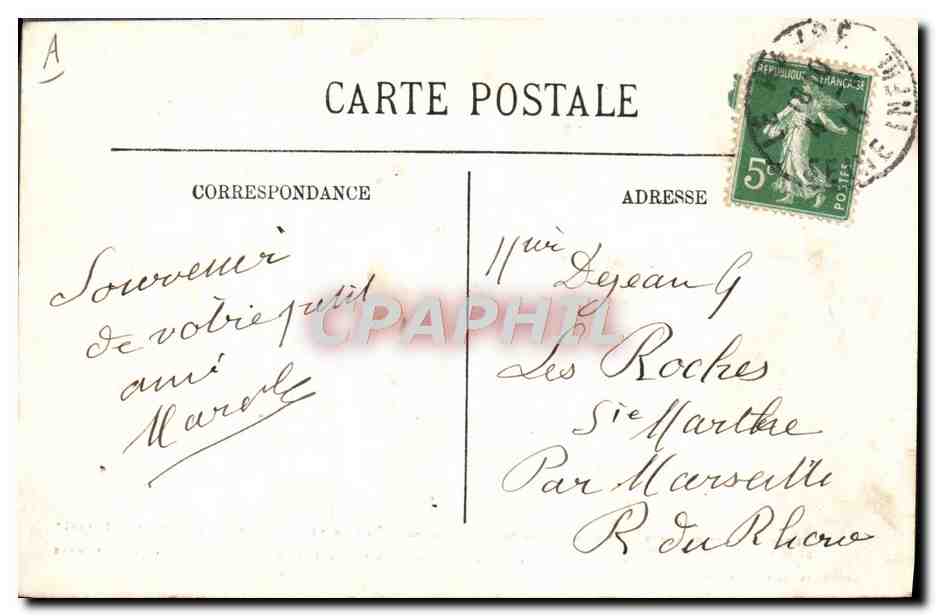 A
CARTE POSTALE
REPUBLIQUE FRANCAISE
5c
POSTES
SEINE INFRE
CORRESPONDANCE
ADRESSE
Souvenir
de votre petit
ami
Marcel
Dejean G
Les Roches
Ste Marthe
Par Marseille
R du Rhone
CPAPHIL